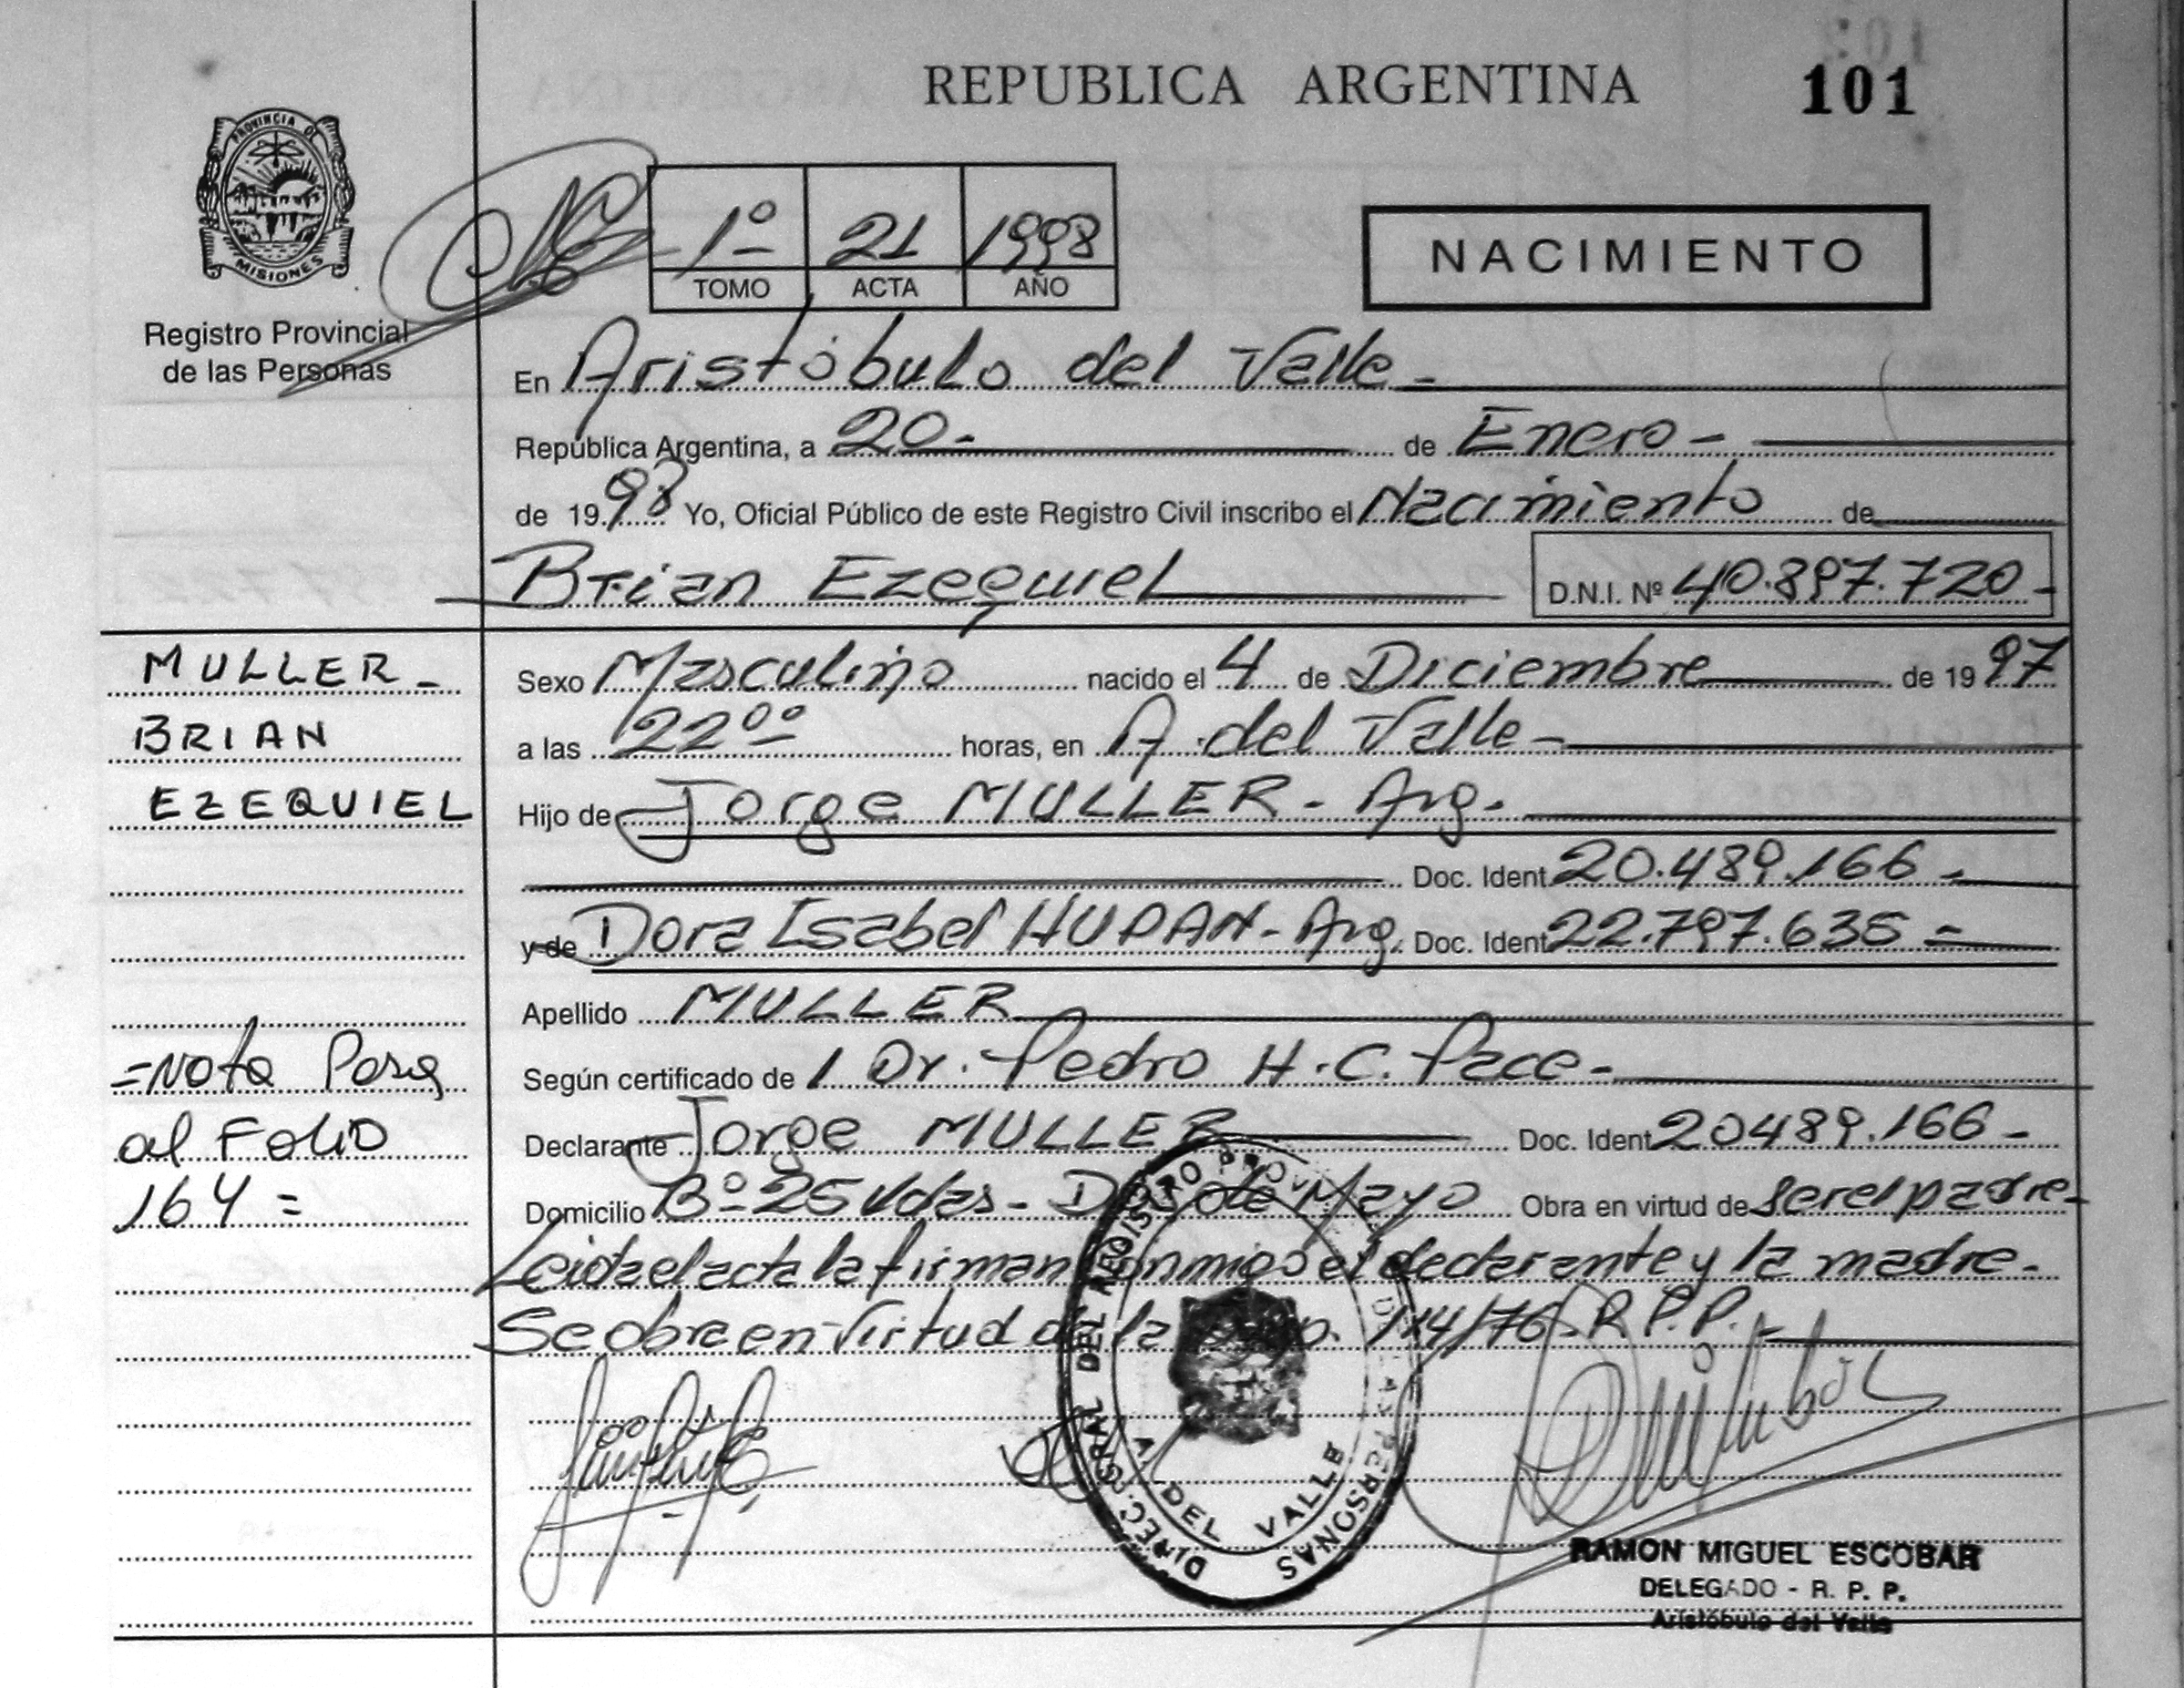 REPUBLICA ARGENTINA
101
PROVINCIA DE
MISIONES
Registro Provincial
de las Personas
1º 21 1998
TOMO ACTA AÑO
NACIMIENTO
En Aristóbulo del Valle -
República Argentina, a 20.- de Enero -
de 1998 Yo, Oficial Público de este Registro Civil inscribo el Nacimiento de
Brian Ezequiel D.N.I. Nº 40.897.720-
MULLER -
BRIAN
EZEQUIEL
Sexo Masculino nacido el 4 de Diciembre de 1997
a las 22ºº horas, en A. del Valle -
Hijo de Jorge MULLER - Arg.
Doc. Ident. 20.489.166 -
y de Dora Isabel HUPAN - Arg. Doc. Ident. 22.797.635 -
Apellido MULLER
Según certificado de l Dr. Pedro H. C. Pace -
Declarante Jorge MULLER Doc. Ident. 20489.166 -
Domicilio Bº 25 Vdas - Dos de Mayo Obra en virtud de ser el padre -
Leida el acta la firman conmigo el declarante y la madre.
Se obra en virtud de la 114/76 - R.P.P. -
=Nota Pasa
al Folio
164 =
DIREC. GRAL DEL REGISTRO PROV. DE LAS PERSONAS
A. DEL VALLE
RAMON MIGUEL ESCOBAR
DELEGADO - R. P. P.
Aristóbulo del Valle